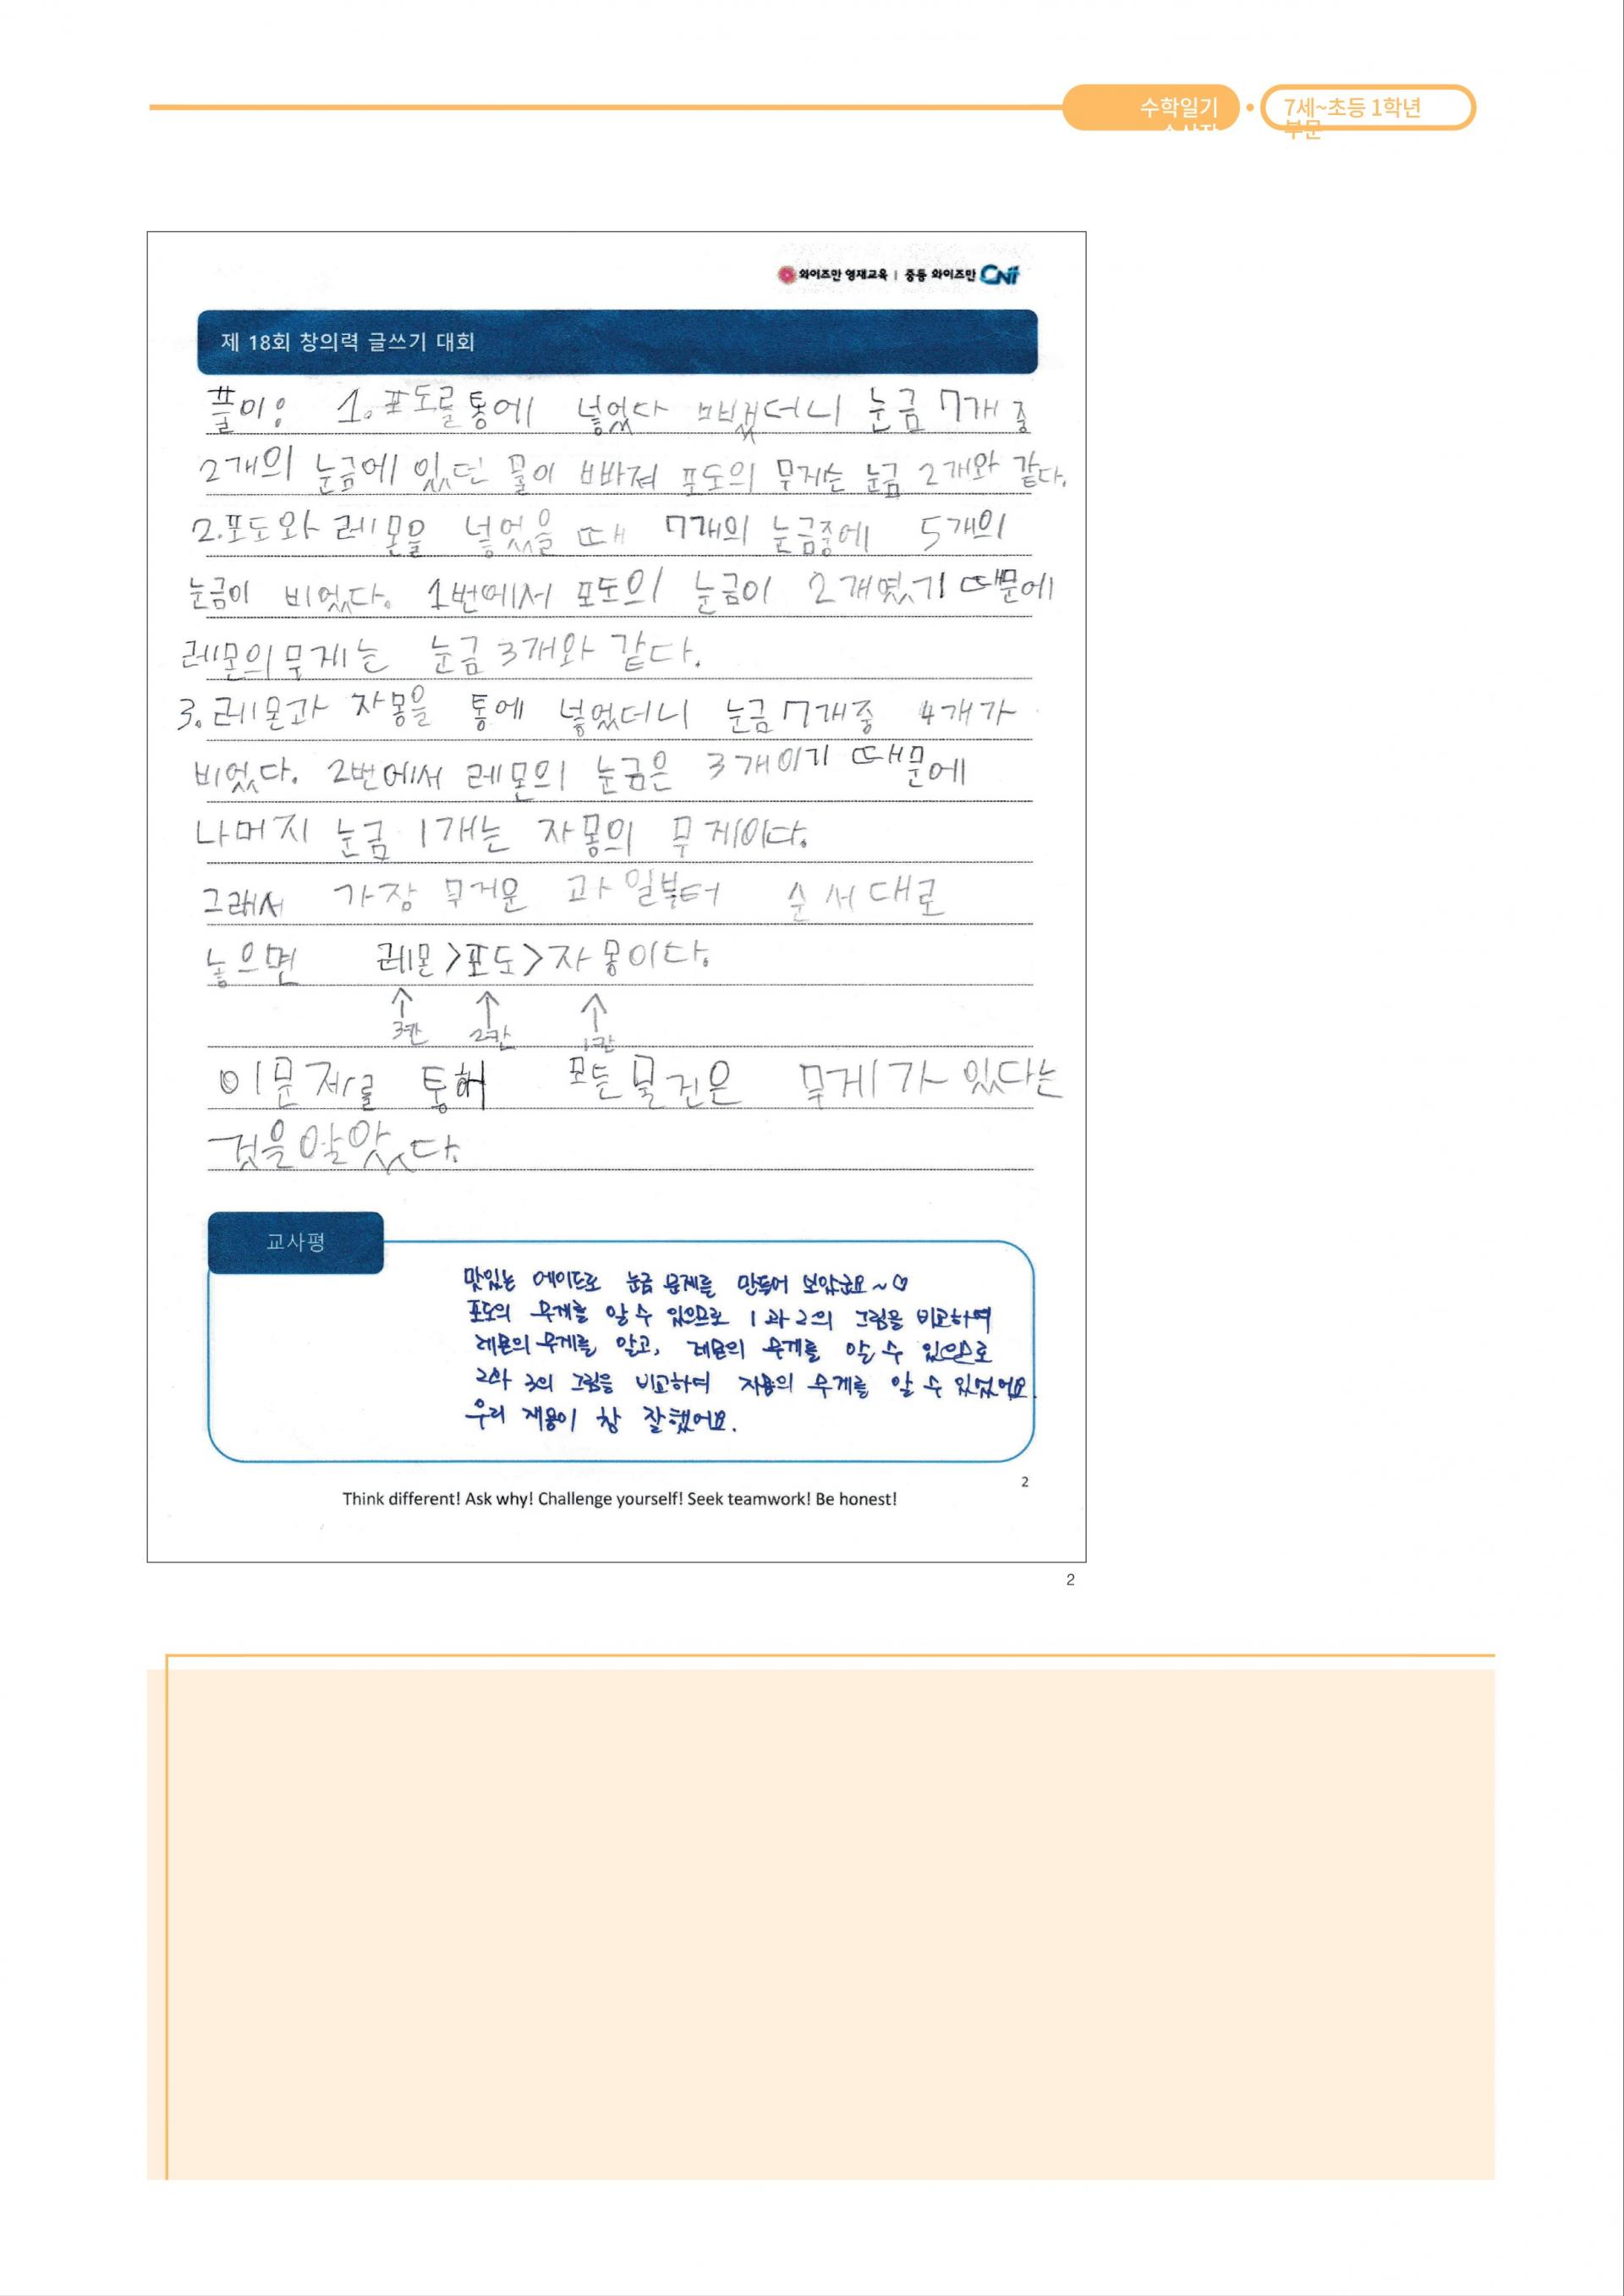 수학일기
7세~초등 1학년
부문
와이즈만 영재교육 | 중등 와이즈만 CNI
제 18회 창의력 글쓰기 대회
풀이: 1. 포도를 통에 넣었다 빼냈더니 눈금 7개 중
2개의 눈금에 있던 물이 빠져 포도의 무게는 눈금 2개와 같다.
2. 포도와 레몬을 넣었을 때 7개의 눈금중에 5개의
눈금이 비었다. 1번에서 포도의 눈금이 2개였기 때문에
레몬의 무게는 눈금 3개와 같다.
3. 레몬과 자몽을 통에 넣었더니 눈금 7개중 4개가
비었다. 2번에서 레몬의 눈금은 3개이기 때문에
나머지 눈금 1개는 자몽의 무게이다.
그래서 가장 무거운 과일부터 순서대로
놓으면 레몬>포도>자몽이다.
↑ ↑ ↑
3칸 2칸 1칸
이문제를 통해 모든물건은 무게가 있다는
것을알았다.
교사평
맛있는 에이드로 눈금 문제를 만들어 보았군요~♡
포도의 무게를 알 수 있으므로 1과 2의 그림을 비교하여
레몬의 무게를 알고, 레몬의 무게를 알 수 있으므로
2와 3의 그림을 비교하며 자몽의 무게를 알 수 있었어요.
우리 재용이 참 잘했어요.
2
Think different! Ask why! Challenge yourself! Seek teamwork! Be honest!
2